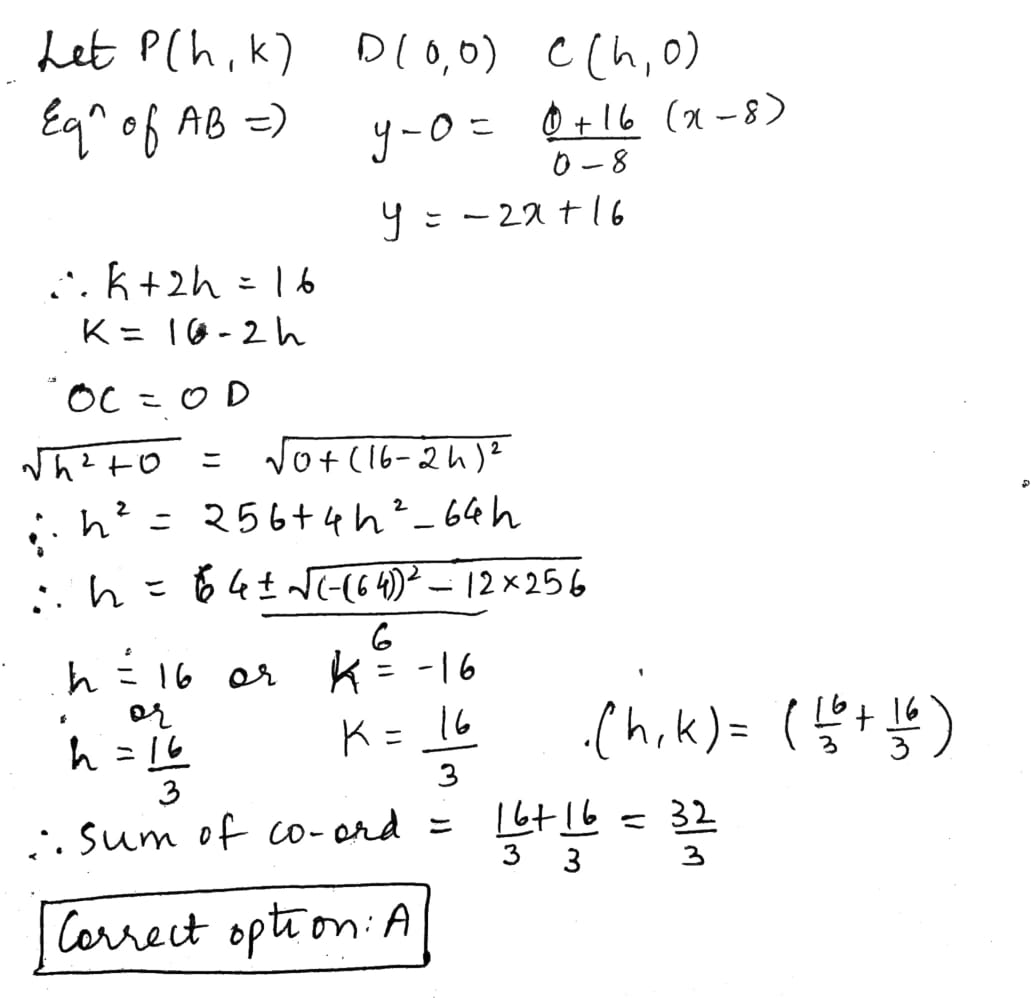 Let P(h,k) D(0,0) C(h,0)
Eqⁿ of AB ⇒) y-0 = 0+16/0-8 (x-8)
y = -2x+16
∴ k+2h = 16
K = 16-2h
OC = OD
√h²+0 = √0+(16-2h)²
∴ h² = 256+4h²-64h
∴ h = 64±√(-(64))²-12×256/6
h = 16 or k = -16
or
h = 16/3 K = 16/3 (h,k) = (16/3+16/3)
∴ Sum of co-ord = 16/3+16/3 = 32/3
Correct option: A